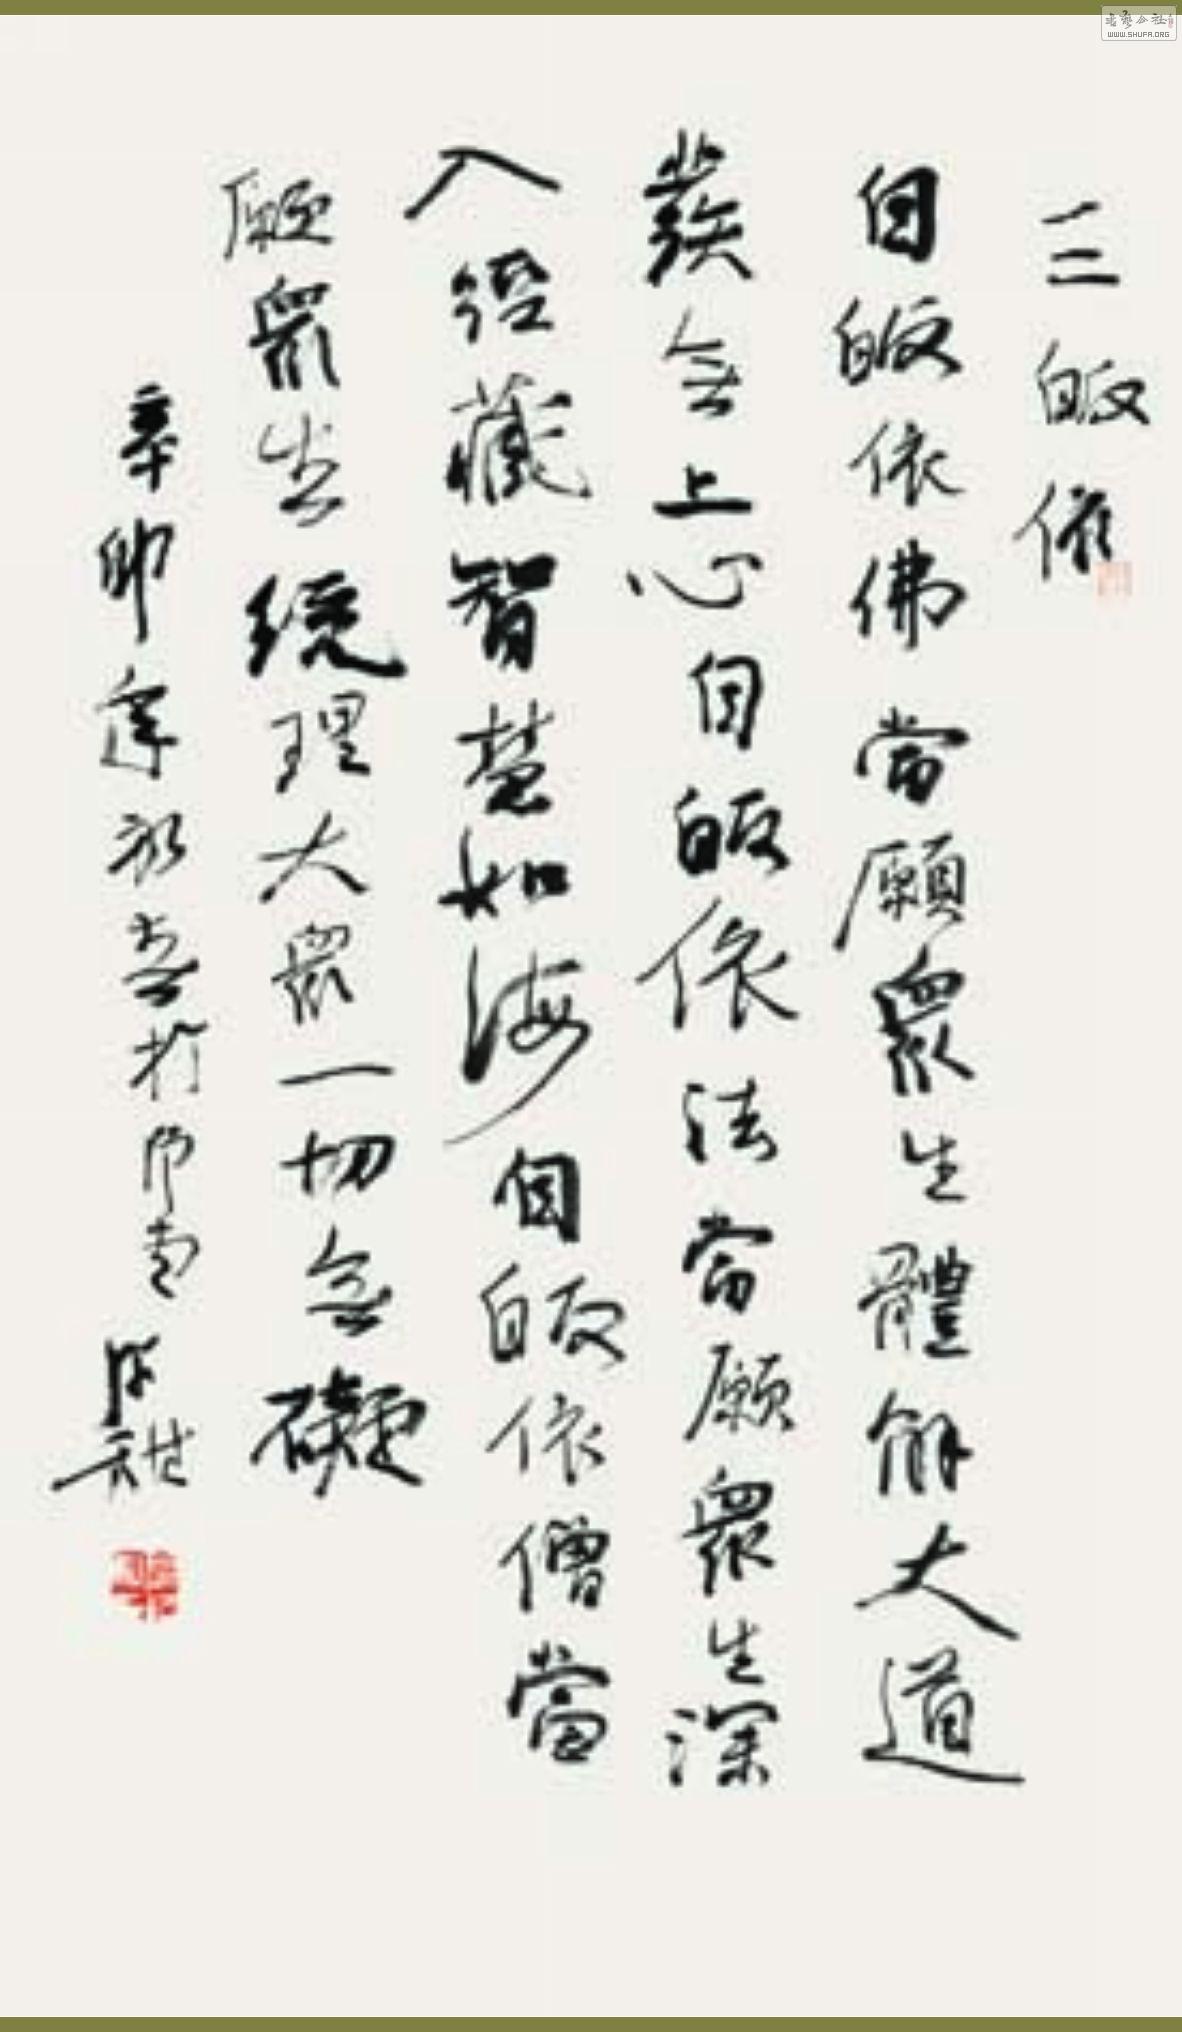 三皈依
自皈依佛當願眾生體解大道
發无上心自皈依法當願眾生深
入經藏智慧如海自皈依僧當
願眾生統理大眾一切无礙
辛卯
WWW.SHUFA.ORG